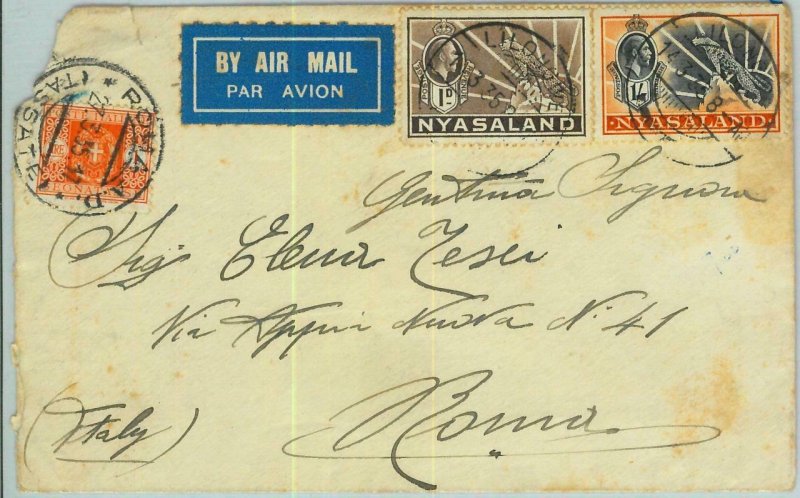 BY AIR MAIL
PAR AVION
1D
NYASALAND
1/-
NYASALAND
ROMA A.D.
(TASSATE)
Gentma Signora
Sig Elena Tesei
Via Appia Nuova N. 41
Roma
(Italy)